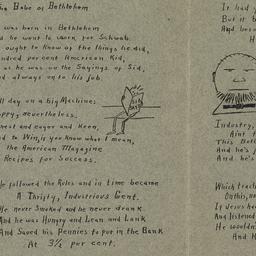 Babe of Bethlehem
was born in Bethlehem
he went to work for Schwab.
ought to know of the things he did,
hundred per cent American Kid,
as he was on the Sayings of Sid,
always on to his job.
all day on a big Machine:
nevertheless.
honest and eager and Keen,
to Win, if you know what I mean,
the American Magazine
Recipes for Success.
He followed the Rules and in time became
A Thrifty, Industrious Gent.
He never Smoked and he never drank.
And he was Hungry and Lean and Lank
And Saved his Pennies to put in the Bank
At 3½ per cent.
It had
But it
And
Industry,
Ain't
This Beth
And he's
And he's
Which
On this,
If Jesus
And listened
He wouldn
And